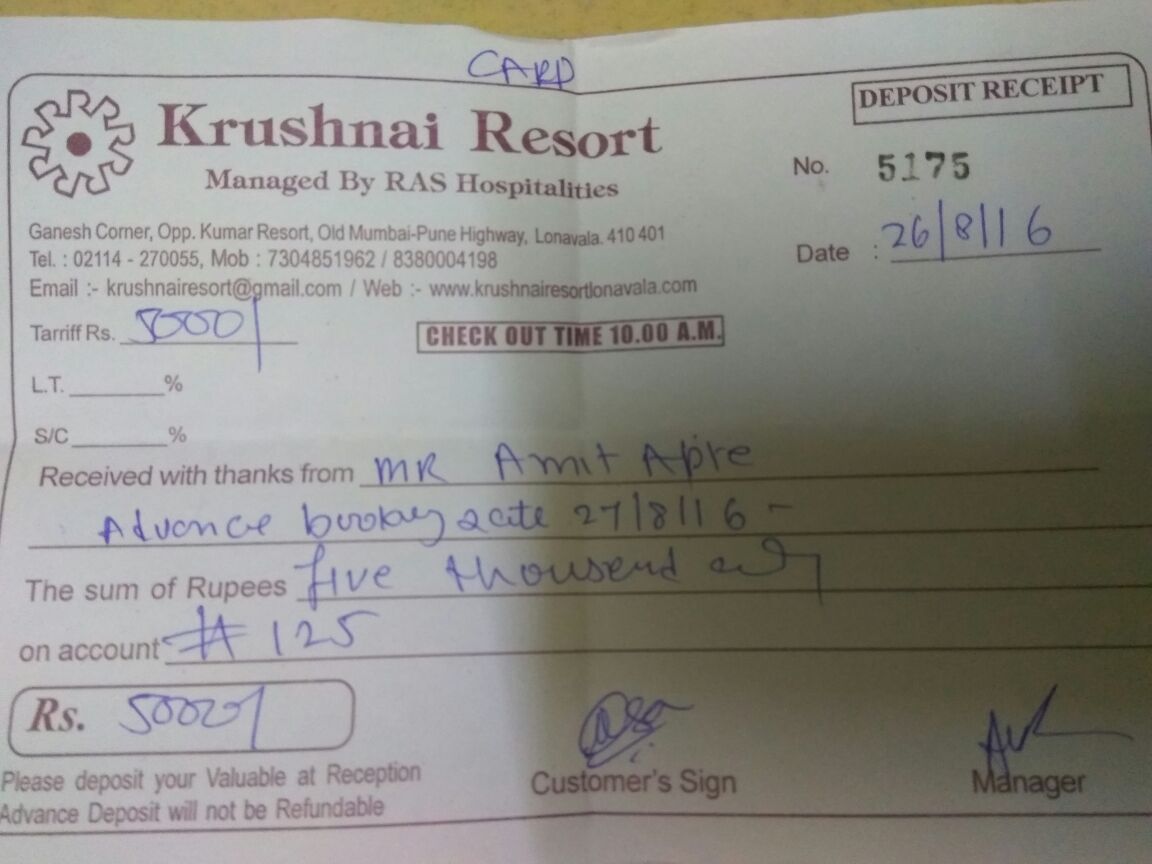 CARD
DEPOSIT RECEIPT
Krushnai Resort
Managed By RAS Hospitalities
No. 5175
Ganesh Corner, Opp. Kumar Resort, Old Mumbai-Pune Highway, Lonavala. 410 401
Date : 26/8/16
Tel. : 02114 - 270055, Mob : 7304851962 / 8380004198
Email :- krushnairesort@gmail.com / Web :- www.krushnairesortlonavala.com
Tarriff Rs. 5000/
CHECK OUT TIME 10.00 A.M.
L.T. ________%
S/C ________%
Received with thanks from MR Amit Apte
Advance date 27/8/16 -
The sum of Rupees five thousend only
on account # 125
Rs. 5000/
Please deposit your Valuable at Reception
Customer's Sign
Manager
Advance Deposit will not be Refundable